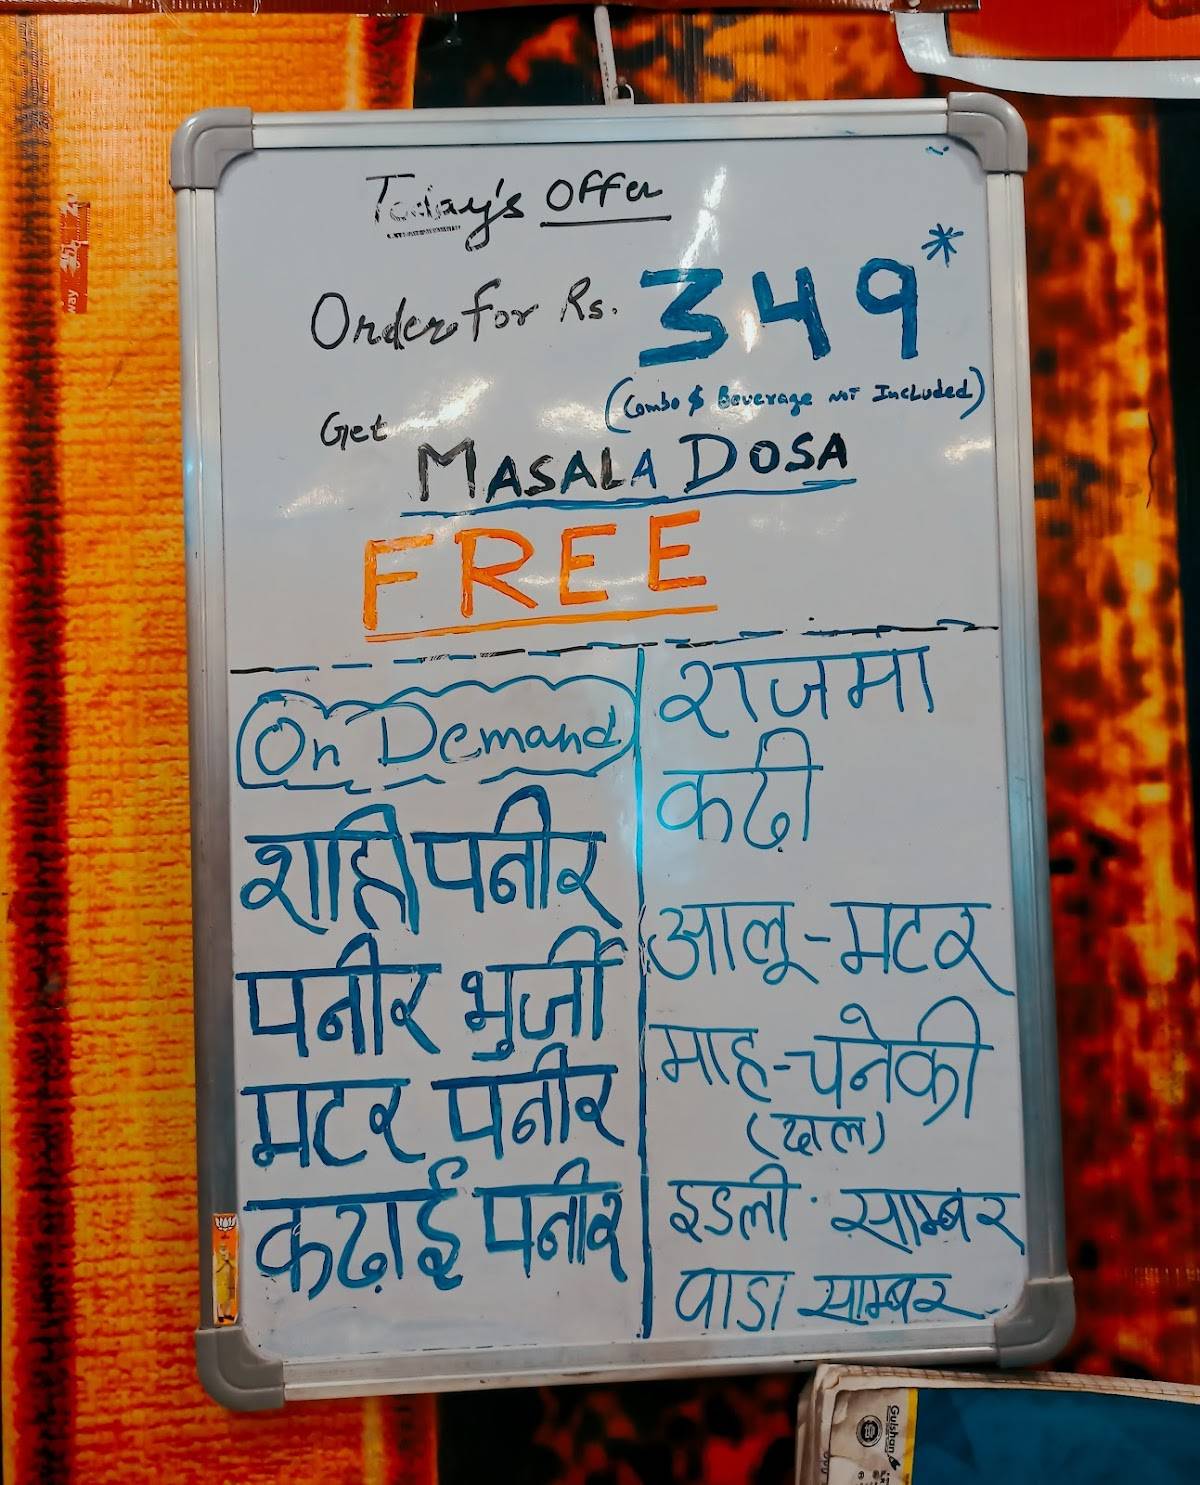 Today's Offer
Order for Rs. 349*
(Combo $ Beverage NOT Included)
Get
MASALA DOSA
FREE
On Demand
शाही पनीर
पनीर भुर्जी
मटर पनीर
कढाई पनीर
राजमा
कढी
आलू-मटर
माह-चनेकी
(दाल)
इडली साम्बर
वाडा साम्बर
Gulshan